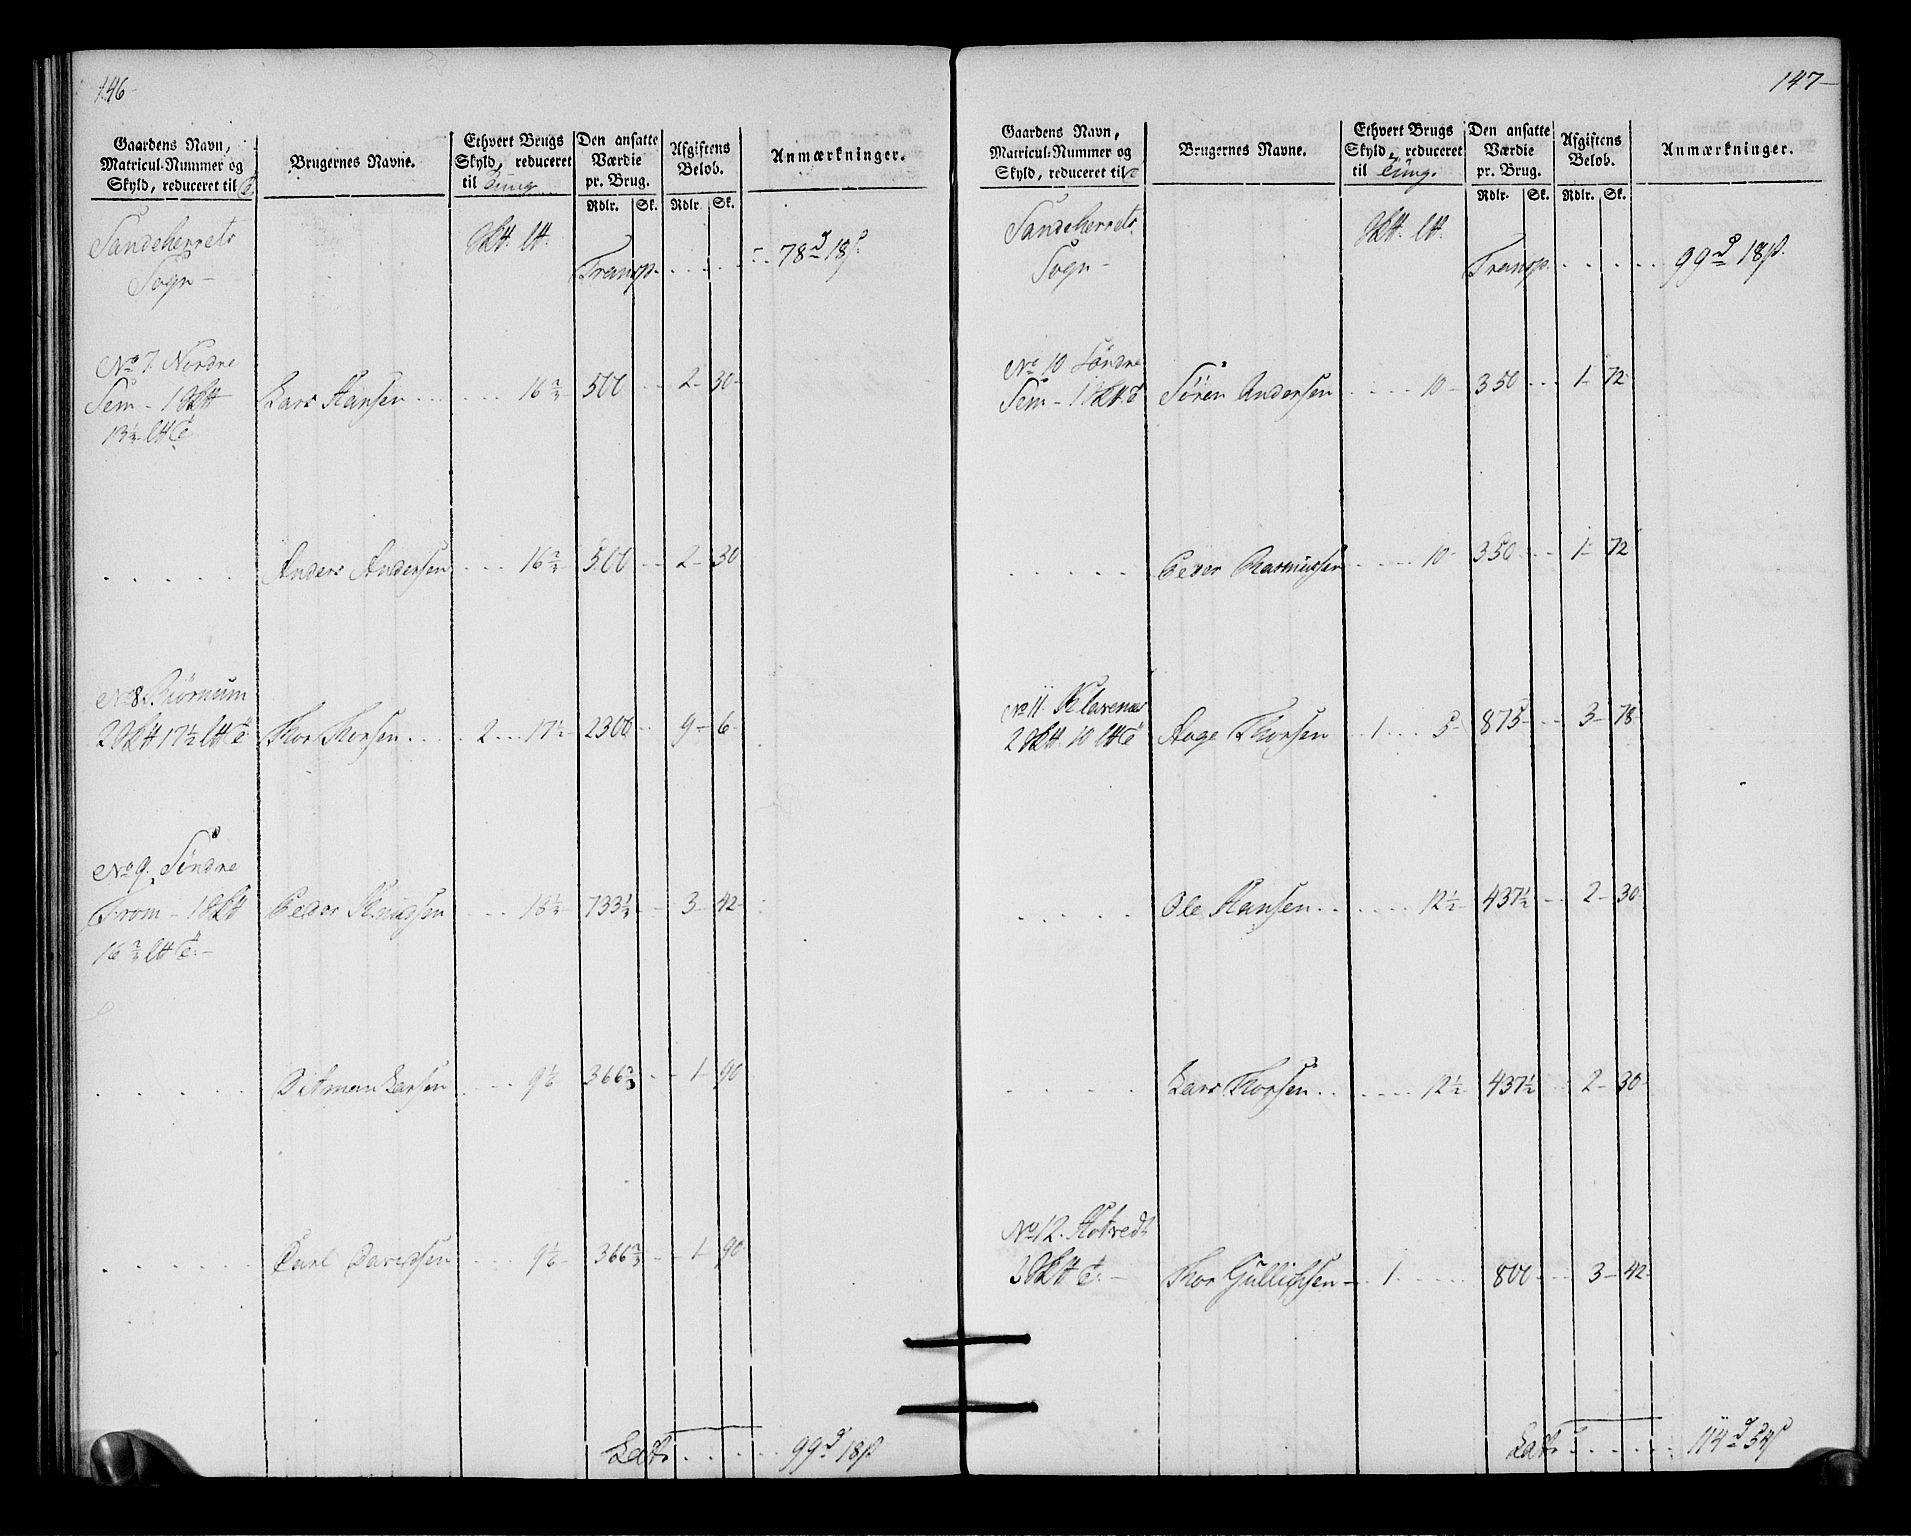 146
Gaardens Navn, Matricul-Nummer og Skyld, reduceret til T.
Brugernes Navne.
Ethvert Brugs Skyld, reduceret til Tung
Den ansatte Værdie pr. Brug.
Afgiftens Beløb.
Anmærkninger.
Rdlr. Sk. Rdlr. Sk.
Sandeherrets Sogn - Skt. lt. Transp. . . . . . 78 d 18 s.
No 7. Nordre
Sem - 1 Skt Lars Hansen . . . . . 16 2/3 500 - - 2 - 30 -
13 1/3 lt T.
. . . . . Anders Andersen . . . 16 2/3 500 - - 2 - 30
No 8. Biørnum
2 Skt 17 1/2 lt T Thor Thorsen . . . 2 . . . 17 1/2 2300 - - 9 - 6
No 9. Søndre
From - 1 Skt Peder Knudsen . . . 18 1/3 733 1/3 - - 3 - 42 -
16 2/3 lt T. -
. . . . . Ditman Larsen . . . 9 1/6 366 2/3 - - 1 - 90
. . . . . Carl Davidsen . . . 9 1/6 366 2/3 - - 1 - 90
Lat. . . . . . 99 d 18 s
147
Gaardens Navn, Matricul-Nummer og Skyld, reduceret til T
Brugernes Navne.
Ethvert Brugs Skyld, reduceret til Tung.
Den ansatte Værdie pr. Brug.
Afgiftens Beløb.
Anmærkninger.
Rdlr. Sk. Rdlr. Sk.
Sandeherrets Sogn - Skt. lt. Transp. . . . . . 99 d 18 s.
No 10 Søndre
Sem - 1 Skt. T Søren Andersen . . . . 10 - 350 - - 1 - 72
. . . . . Peder Rasmussen . . . . 10 - 350 - - 1 - 72
No 11. Klavenes
2 Skt. 10 lt T Aage Thorsen . . 1 . . . 5 - 875 - - 3 - 78
. . . . . Ole Hansen . . . . . 12 1/2 437 1/2 - - 2 - 30
. . . . . Lars Thorsen . . . . . 12 1/2 437 1/2 - - 2 - 30
No 12. Hotvedt
Skt T. - Thor Gullichsen - 1 . . . . . 800 - - 3 - 42
Lat. . . . . . 114 d 54 s